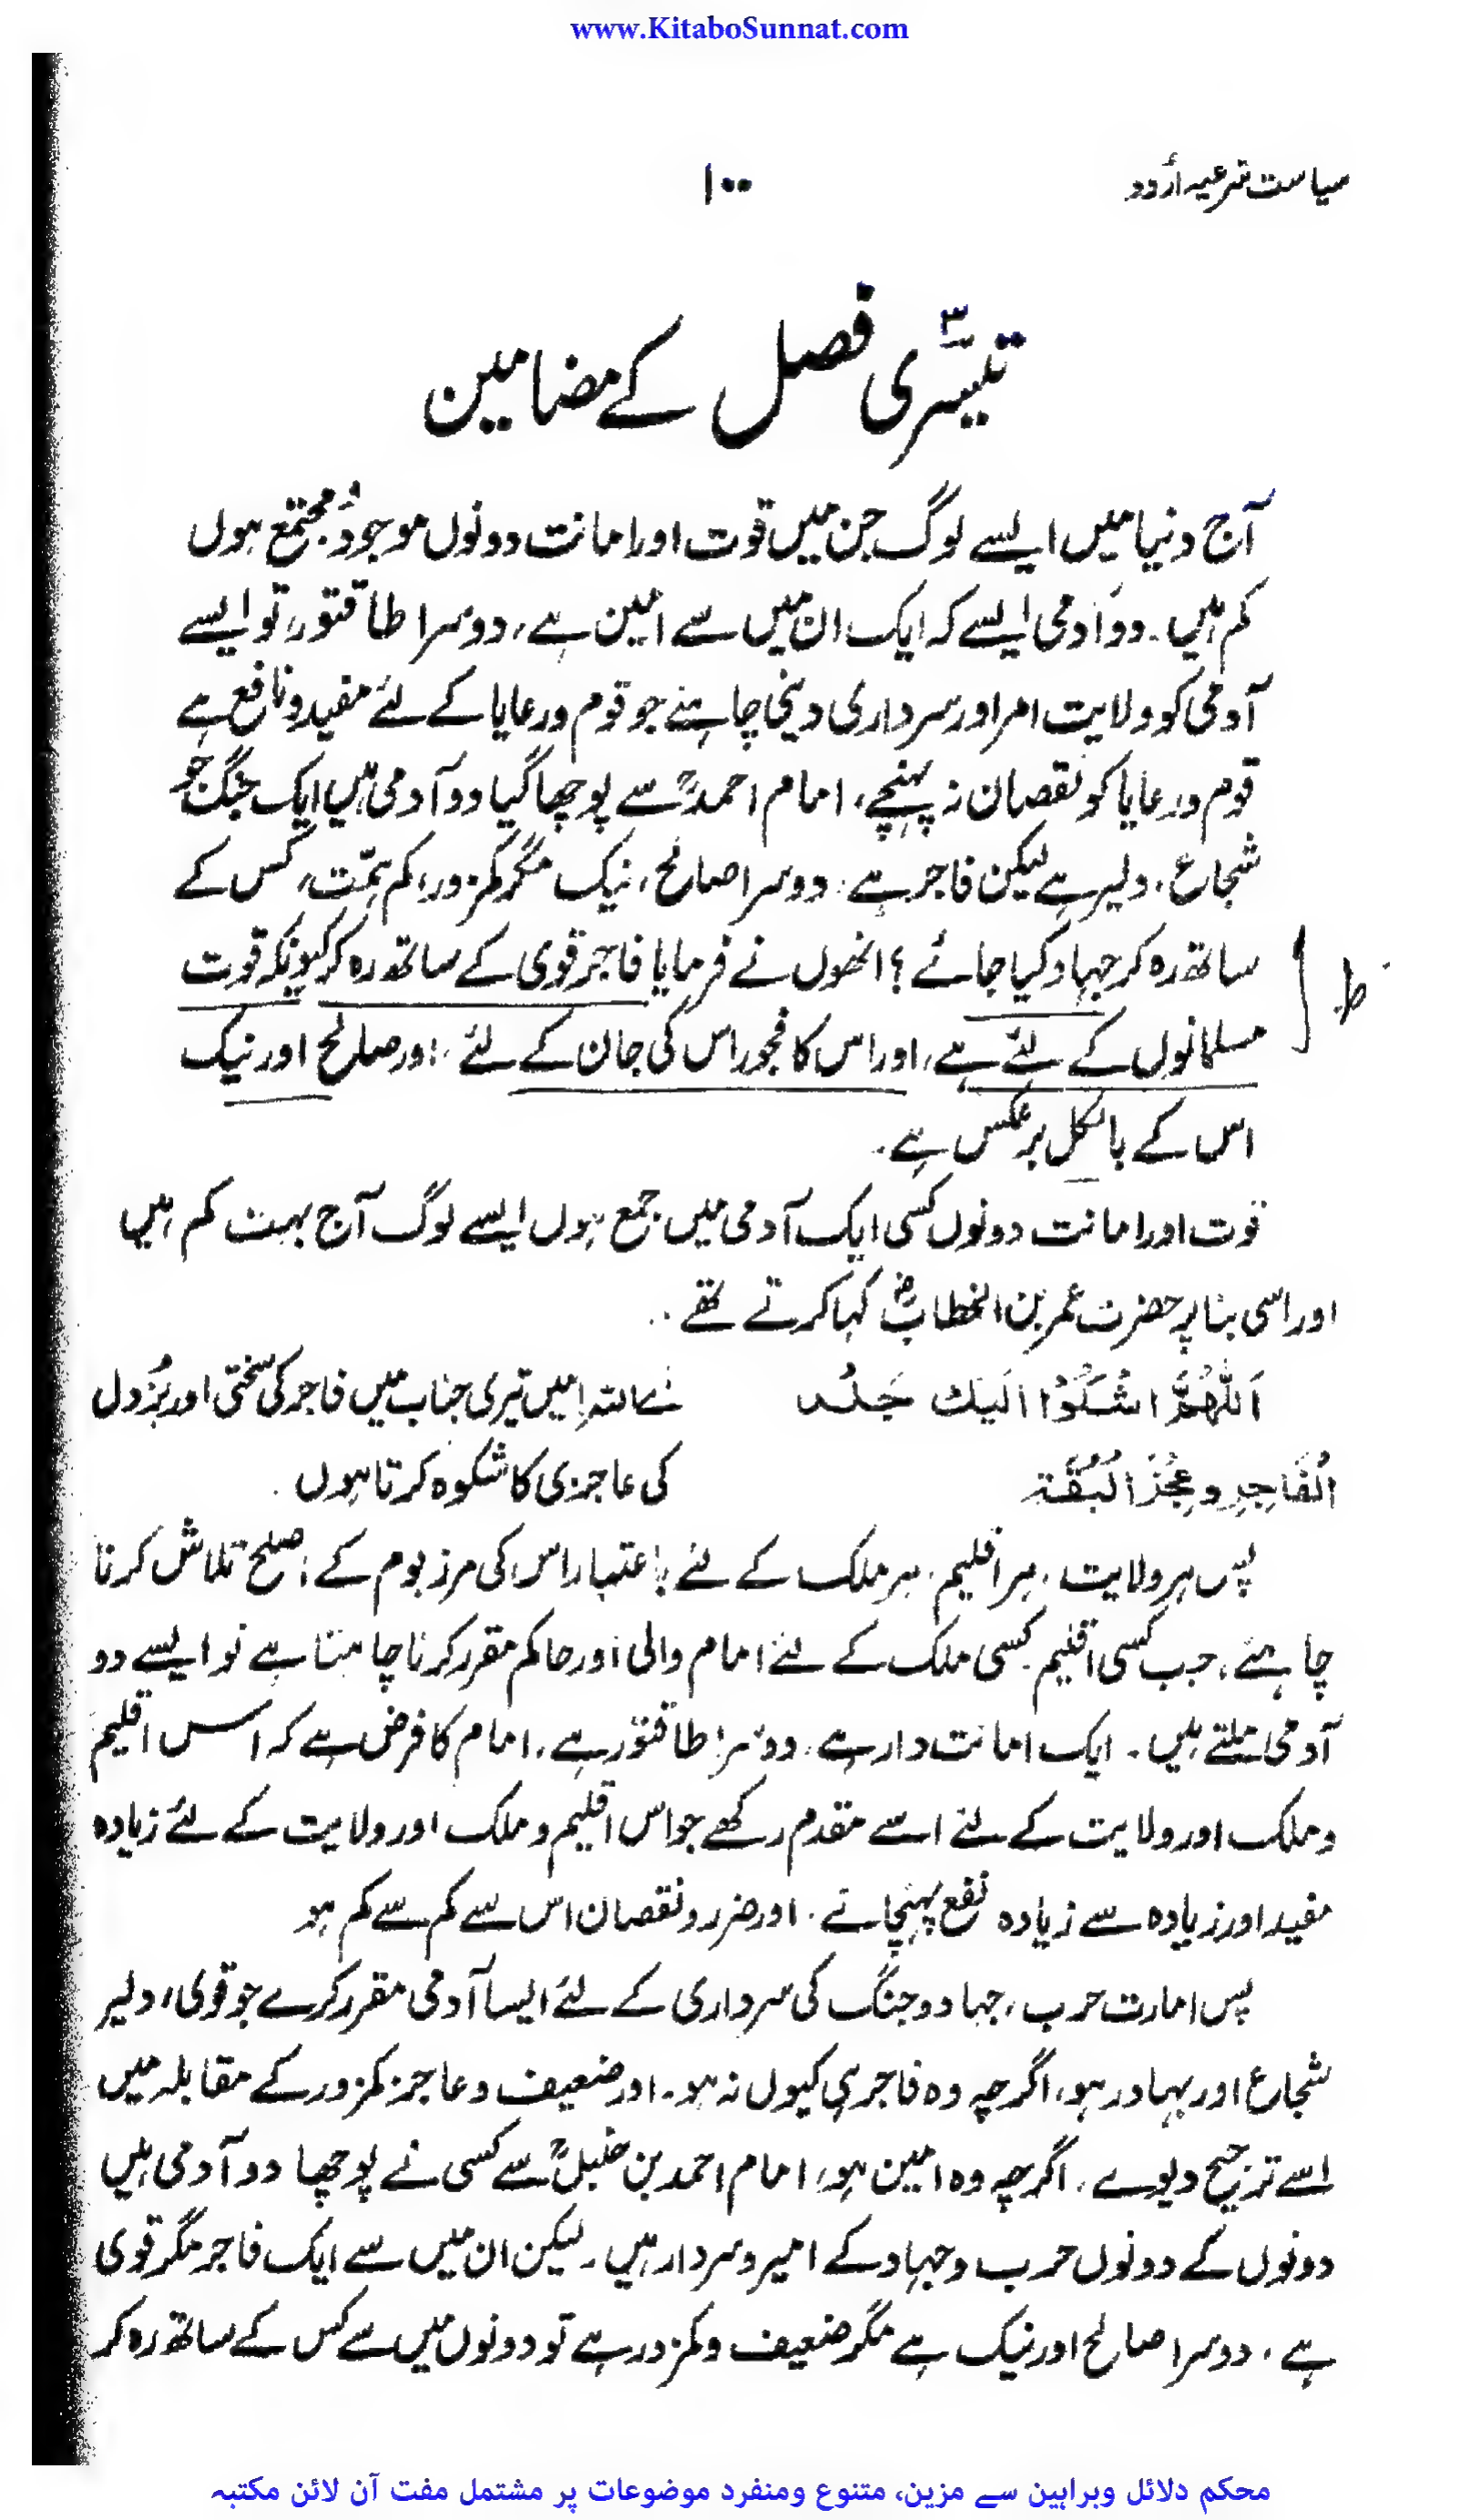 www.KitaboSunnat.com
سیاست شرعیہ اُردو
۱۰۰
تیسری فصل کے مضامین
آج دنیا میں ایسے لوگ جن میں قوت اور امانت دونوں موجود مجتمع ہوں
کم ہیں۔ دو آدمی ایسے کہ ایک ان میں سے امین ہے، دوسرا طاقتور، تو ایسے
آدمی کو ولایت امر اور سرداری دینی چاہئے جو قوم و رعایا کے لئے مفید و نافع ہے
قوم و رعایا کو نقصان نہ پہنچے، امام احمدؒ سے پوچھا گیا دو آدمی ہیں ایک جنگ جو
شجاع، دلیر ہے لیکن فاجر ہے، دوسرا صالح، نیک مگر کمزور، کم ہمّت، کس کے
ساتھ رہ کر جہاد کیا جائے؟ انھوں نے فرمایا فاجر قوی کے ساتھ رہ کر کیونکہ قوت
مسلمانوں کے لئے ہے، اور اس کا فجور اس کی جان کے لئے، اور صالح اور نیک
اس کے بالکل برعکس ہے۔
قوت اور امانت دونوں کسی ایک آدمی میں جمع ہوں ایسے لوگ آج بہت کم ہیں
اور اسی بنا پر حضرت عمر بن الخطابؓ کہا کرتے تھے۔
اَللّٰھُمَّ اشْکُوْا الَیْكَ جَلَد
اے اللہ! میں تیری جناب میں فاجر کی سختی اور بُزدل
الْفَاجِرِ وعِجْزَ الثِّقَة
کی عاجزی کا شکوہ کرتا ہوں۔
پس ہر ولایت، ہر اقلیم، ہر ملک کے لئے باعتبار اس کی مرزبوم کے اصلح تلاش کرنا
چاہئے، جب کسی اقلیم، کسی ملک کے لئے امام والی اور حاکم مقرر کرنا چاہتا ہے تو ایسے دو
آدمی ملتے ہیں۔ ایک امانت دار ہے، دوسرا طاقتور ہے، امام کا فرض ہے کہ اس اقلیم
و ملک اور ولایت کے لئے اسے مقدم رکھے جو اس اقلیم و ملک اور ولایت کے لئے زیادہ
مفید اور زیادہ سے زیادہ نفع پہنچائے، اور ضرر و نقصان اس سے کم سے کم ہو
پس امارت حرب، جہاد و جنگ کی سرداری کے لئے ایسا آدمی مقرر کرے جو قوی، دلیر
شجاع اور بہادر ہو، اگرچہ وہ فاجر ہی کیوں نہ ہو۔ اور ضعیف و عاجز کمزور کے مقابلہ میں
اسے ترجیح دیوے، اگرچہ وہ امین ہو، امام احمد بن حنبلؒ سے کسی نے پوچھا دو آدمی ہیں
دونوں کے دونوں حرب و جہاد کے امیر و سردار ہیں۔ لیکن ان میں سے ایک فاجر مگر قوی
ہے، دوسرا صالح اور نیک ہے مگر ضعیف و کمزور ہے تو دونوں میں سے کس کے ساتھ رہ کر
محکم دلائل وبراہین سے مزین، متنوع ومنفرد موضوعات پر مشتمل مفت آن لائن مکتبہ